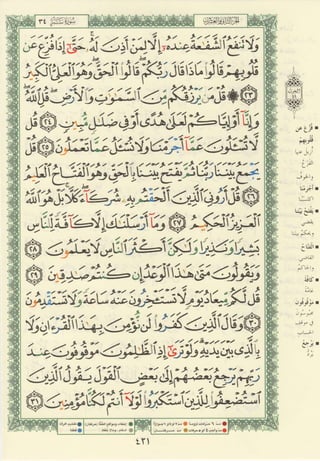 سورة سبأ ٣٤
الجزء الثاني والعشرون
وَلَا تَنفَعُ الشَّفَاعَةُ عِندَهُ إِلَّا لِمَنْ أَذِنَ لَهُ حَتَّىٰ إِذَا فُزِّعَ عَن
قُلُوبِهِمْ قَالُوا مَاذَا قَالَ رَبُّكُمْ قَالُوا الْحَقَّ وَهُوَ الْعَلِيُّ الْكَبِيرُ
٢٣ ۞ قُلْ مَن يَرْزُقُكُم مِّنَ السَّمَاوَاتِ وَالْأَرْضِ قُلِ اللَّهُ
وَإِنَّا أَوْ إِيَّاكُمْ لَعَلَىٰ هُدًى أَوْ فِي ضَلَالٍ مُّبِينٍ ٢٤ قُل
لَّا تُسْأَلُونَ عَمَّا أَجْرَمْنَا وَلَا نُسْأَلُ عَمَّا تَعْمَلُونَ ٢٥ قُلْ
يَجْمَعُ بَيْنَنَا رَبُّنَا ثُمَّ يَفْتَحُ بَيْنَنَا بِالْحَقِّ وَهُوَ الْفَتَّاحُ الْعَلِيمُ
٢٦ قُلْ أَرُونِيَ الَّذِينَ أَلْحَقْتُم بِهِ شُرَكَاءَ كَلَّا بَلْ هُوَ اللَّهُ
الْعَزِيزُ الْحَكِيمُ ٢٧ وَمَا أَرْسَلْنَاكَ إِلَّا كَافَّةً لِّلنَّاسِ
بَشِيرًا وَنَذِيرًا وَلَٰكِنَّ أَكْثَرَ النَّاسِ لَا يَعْلَمُونَ ٢٨
وَيَقُولُونَ مَتَىٰ هَٰذَا الْوَعْدُ إِن كُنتُمْ صَادِقِينَ ٢٩
قُل لَّكُم مِّيعَادُ يَوْمٍ لَّا تَسْتَأْخِرُونَ عَنْهُ سَاعَةً وَلَا تَسْتَقْدِمُونَ
٣٠ وَقَالَ الَّذِينَ كَفَرُوا لَن نُّؤْمِنَ بِهَٰذَا الْقُرْآنِ وَلَا
بِالَّذِي بَيْنَ يَدَيْهِ وَلَوْ تَرَىٰ إِذِ الظَّالِمُونَ مَوْقُوفُونَ عِندَ
رَبِّهِمْ يَرْجِعُ بَعْضُهُمْ إِلَىٰ بَعْضٍ الْقَوْلَ يَقُولُ الَّذِينَ
اسْتُضْعِفُوا لِلَّذِينَ اسْتَكْبَرُوا لَوْلَا أَنتُمْ لَكُنَّا مُؤْمِنِينَ ٣١
٤٣١
الحزب
فُزِّعَ عن
قلوبهم
أجرمنا
يفتح بيننا
الفتّاح
كافّة
موقوفون
يرجع